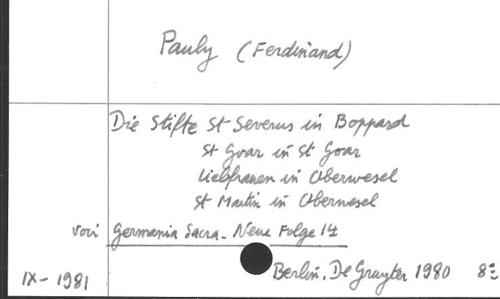 Pauly (Ferdinand)
Die Stifte St Severus in Boppard
St Goar in St Goar
Liebfrauen in Oberwesel
St Martin in Oberwesel
voir Germania Sacra - Neue Folge 14
Berlin, De Gruyter 1980 8º
IX - 1981